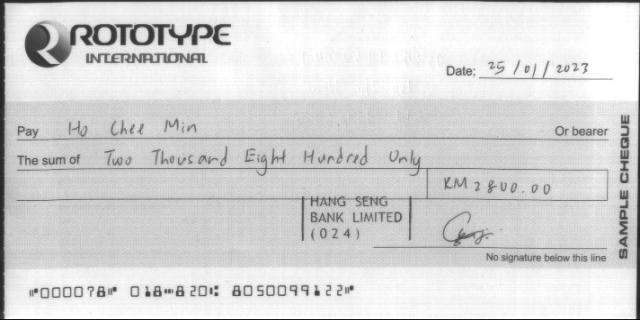 ROTOTYPE
INTERNATIONAL
Date: 25/01/2023
Pay Ho Chee Min Or bearer
The sum of Two Thousand Eight Hundred Only
RM2800.00
HANG SENG
BANK LIMITED
(024)
No signature below this line
SAMPLE CHEQUE
⑈000078⑈ 018⑉820⑆ 8050099122⑈